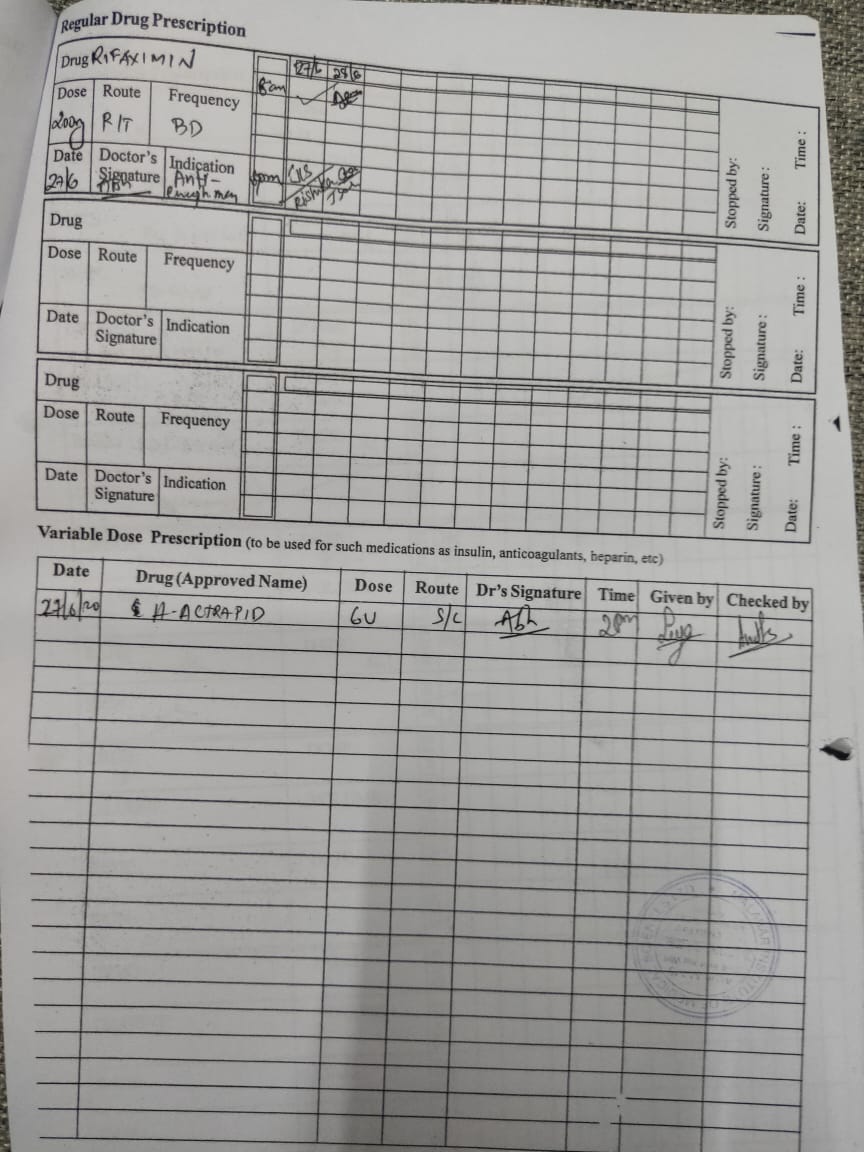 Regular Drug Prescription
Drug RIFAXIMIN
27/6 28/6
8am
Dose Route Frequency
200g R/T BD
Date Doctor's Signature Indication
27/6 Anti-
6pm
Stopped by:
Signature :
Date: Time :
Drug
Dose Route Frequency
Date Doctor's Signature Indication
Stopped by:
Signature :
Date: Time :
Drug
Dose Route Frequency
Date Doctor's Signature Indication
Stopped by:
Signature :
Date: Time :
Variable Dose Prescription (to be used for such medications as insulin, anticoagulants, heparin, etc)
Date Drug (Approved Name) Dose Route Dr's Signature Time Given by Checked by
27/6/20 H-ACTRAPID 6U S/C 2pm